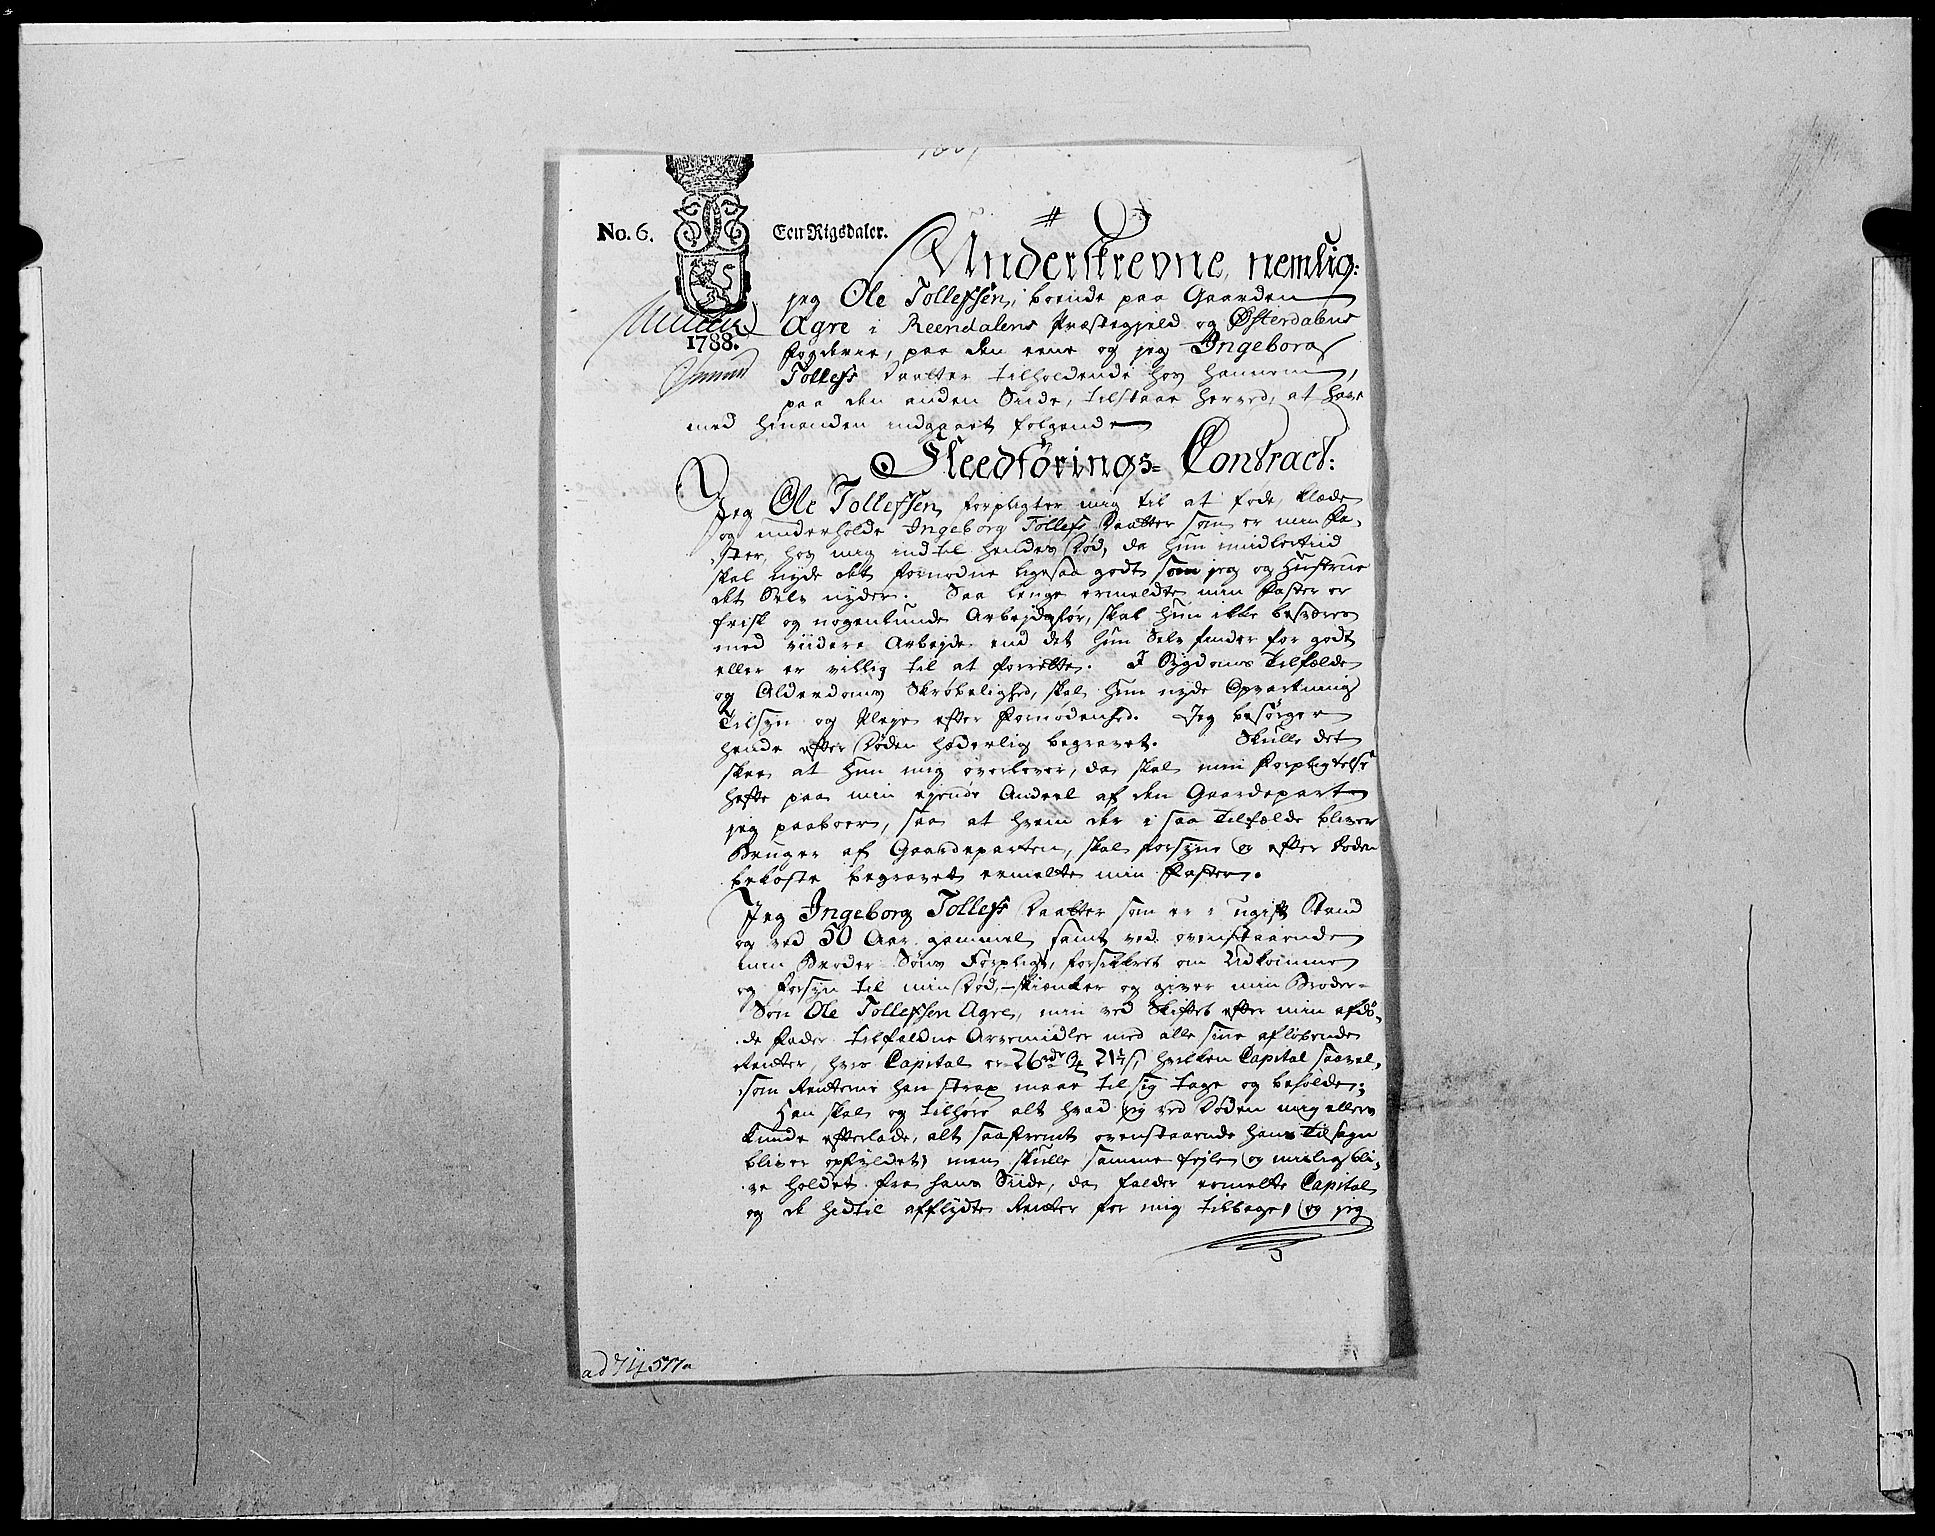 No. 6.
Een Rigsdaler.
1788.
Underskrevne, nemlig:
jeg Ole Tollefssen, boende paa Gaarden
Agre i Reendalens Præstegield og Østerdalens
Fogderie, paa den eene og jeg Ingeborg
Tollefs Daatter tilholdende hos hannem,
paa den anden Siide, tilstaar herved, at have
med hinanden indgaaet følgende
Fleedførings- Contract:
Jeg Ole Tollefssen forpligter mig til at føde, klæde
og underholde Ingeborg Tollefs Daatter som er min Fa-
ster, hos mig indtil hendes Død, da hun imidlertiid
skal nyde det fornødne ligesaa godt som jeg og Hustrue
det Selv nyder. Saa længe ermeldte min Faster er
frisk og nogenlunde Arbejdsfør, skal hun ikke besværes
med viidere Arbejde end det hun Selv finder for godt
eller er villig til at forrette. I Sygdoms Tilfælde
og Alderdoms Skrøbelighed, skal hun nyde Opvartning
Tilsyn og Pleje efter Fornødenhed. Jeg besørger
hende efter Døden hæderlig begravet. Skulle det
skee at hun mig overlever, da skal min Forpligtelse
hefte paa min ejende Andeel af den Gaardepart
jeg paaboer, saa at hvem der i saa Tilfælde bliver
Bruger af Gaardeparten, skal forsyne og efter Døden
bekoste begravet ermelte min Faster.
Jeg Ingeborg Tollefs Daatter som er i ugift Stand
og ved 50 Aar gammel samt ved ovenstaaende
min Broder Søns Forpligt, forsikkret om Udkomme
og Forsyn til min Død, - skiænker og giver min Broder-
Søn Ole Tollefssen Agre, min ved Skiftet efter min afdø-
de Fader tilfaldne Arvemidler med alle sine afløbende
Renter, hvis Capital er 26 rdr 3/4 21 1/7 s, hvilken Capital saavel-
som Renterne han strax maae til sig tage og beholde;
Han skal og tilhøre alt hvad jeg ved Døden mig ellers
kunde efterlade, alt saafremt ovenstaaende hans Tilsagn
bliver opfyldet; men skulle samme fejle og mislig bli-
ve holdet fra hans Siide, da falder ermelte Capital
og de hidtil afflydte Renter for mig tilbage, og jeg
ad